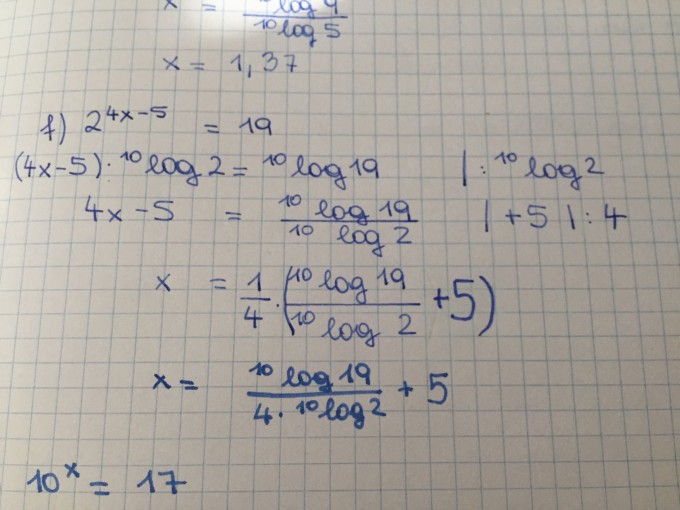 x = ¹⁰log 9 / ¹⁰log 5
x = 1,37
f) 2^(4x-5) = 19
(4x-5) · ¹⁰log 2 = ¹⁰log 19 | : ¹⁰log 2
4x - 5 = ¹⁰log 19 / ¹⁰log 2 | + 5 | : 4
x = 1/4 · (¹⁰log 19 / ¹⁰log 2 + 5)
x = ¹⁰log 19 / 4 · ¹⁰log 2 + 5
10^x = 17